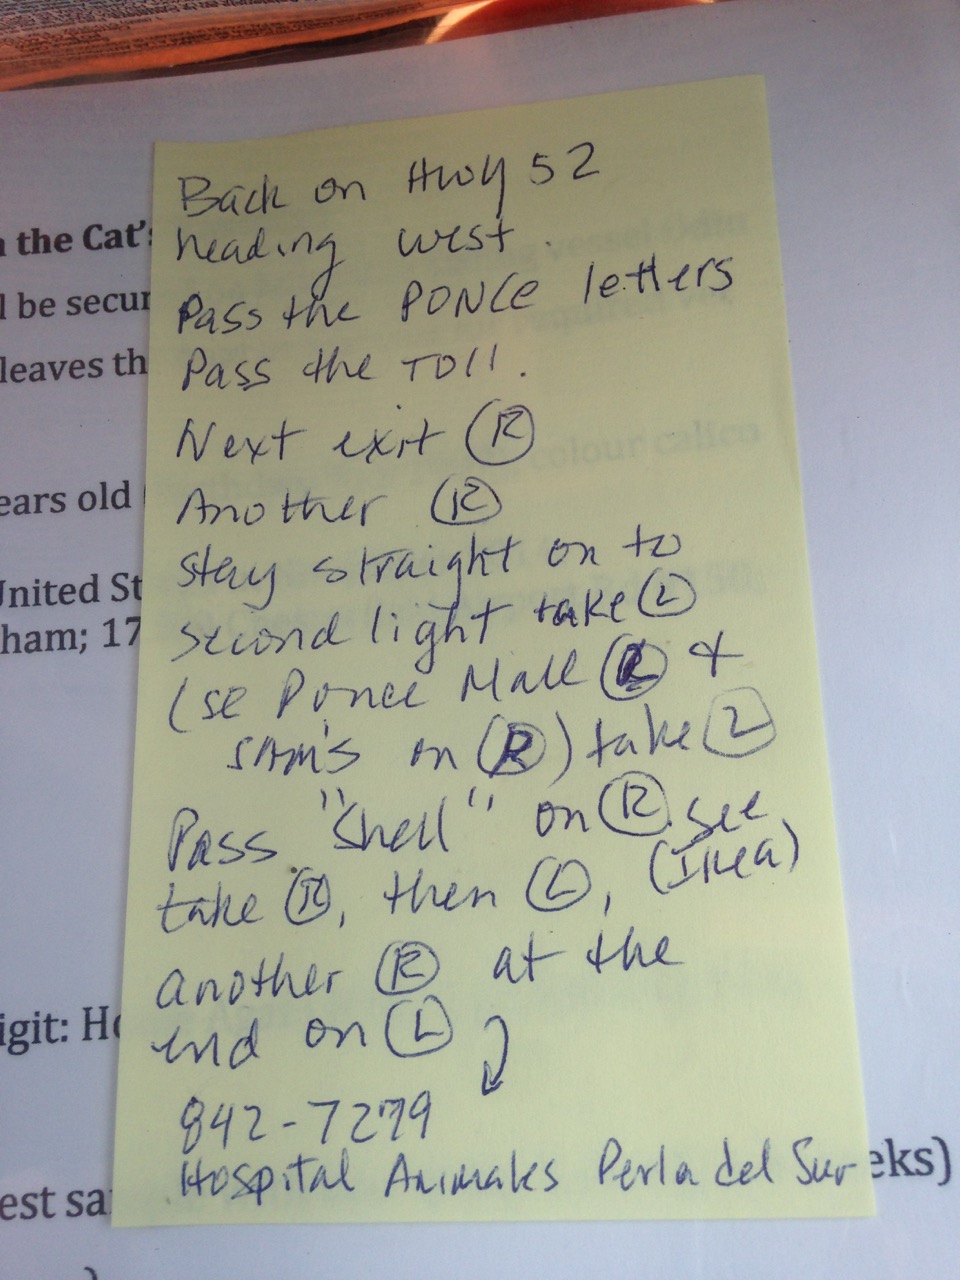 Back on Hwy 52
heading west.
Pass the PONCE letters
Pass the Toll.
Next exit Ⓡ
Another Ⓡ
stay straight on to
second light take Ⓛ
(se Ponce Mall Ⓡ +
SAM's on Ⓡ) take Ⓛ
Pass "Shell" on Ⓡ. see
take Ⓡ, then Ⓛ, (Ikea)
another Ⓡ at the
end on Ⓛ
842-7279
Hospital Animales Perla del Sur
n the Cat's
l be secur
leaves th
ears old
United St
ham; 17
colour calico
igit: Ho
est sa
eks)